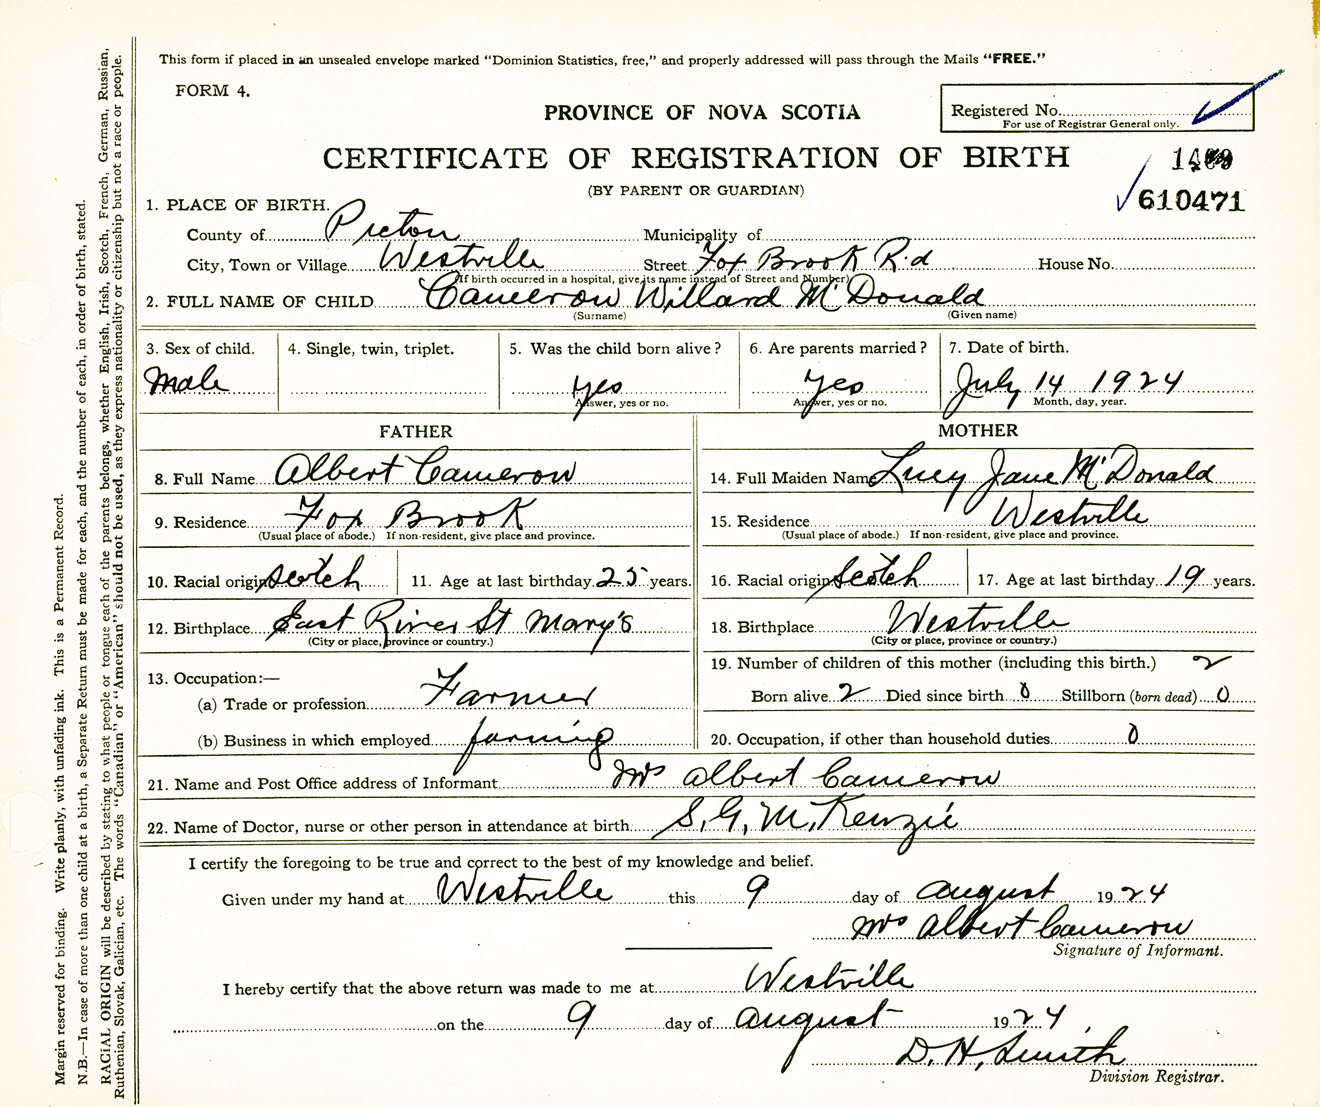 This form if placed in an unsealed envelope marked "Dominion Statistics, free," and properly addressed will pass through the Mails "FREE."
FORM 4.
PROVINCE OF NOVA SCOTIA
Registered No.
For use of Registrar General only.
CERTIFICATE OF REGISTRATION OF BIRTH
(BY PARENT OR GUARDIAN)
610471
1. PLACE OF BIRTH.
County of Pictou Municipality of
City, Town or Village Westville Street Fox Brook Rd House No.
(If birth occurred in a hospital, give its name instead of Street and Number)
2. FULL NAME OF CHILD Cameron Willard McDonald
(Surname) (Given name)
3. Sex of child. 4. Single, twin, triplet. 5. Was the child born alive? 6. Are parents married? 7. Date of birth.
Male yes yes July 14 1924
Answer, yes or no. Answer, yes or no. Month, day, year.
FATHER MOTHER
8. Full Name Albert Cameron 14. Full Maiden Name Lucy Jane McDonald
9. Residence Fox Brook 15. Residence Westville
(Usual place of abode.) If non-resident, give place and province. (Usual place of abode.) If non-resident, give place and province.
10. Racial origin Scotch 11. Age at last birthday 25 years. 16. Racial origin Scotch 17. Age at last birthday 19 years.
12. Birthplace East River St Mary's 18. Birthplace Westville
(City or place, province or country.) (City or place, province or country.)
13. Occupation:— 19. Number of children of this mother (including this birth.) 2
(a) Trade or profession Farmer Born alive 2 Died since birth 0 Stillborn (born dead) 0
(b) Business in which employed farming 20. Occupation, if other than household duties 0
21. Name and Post Office address of Informant Mrs Albert Cameron
22. Name of Doctor, nurse or other person in attendance at birth S. G. McKenzie
I certify the foregoing to be true and correct to the best of my knowledge and belief.
Given under my hand at Westville this 9 day of August 1924
Mrs Albert Cameron
Signature of Informant.
I hereby certify that the above return was made to me at Westville
on the 9 day of August 1924
D. H. Smith
Division Registrar.
Margin reserved for binding. Write plainly, with unfading ink. This is a Permanent Record.
N.B.—In case of more than one child at a birth, a Separate Return must be made for each, and the number of each, in order of birth, stated.
RACIAL ORIGIN will be described by stating to what people or tongue each of the parents belongs, whether English, Irish, Scotch, French, German, Russian,
Ruthenian, Slovak, Galician, etc. The words "Canadian" or "American" should not be used, as they express nationality or citizenship but not a race or people.